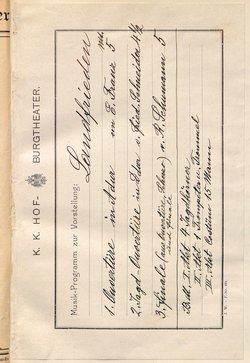 K. K. HOF- BURGTHEATER.
Musik-Programm zur Vorstellung:
Landfrieden
1. Ouvertüre in A dur von E. Franz 5
2. Jagd-Ouvertüre in Esdur v. Fried. Schneider 4½
3. Finale (aus Ouvertüre, Scherzo) v. R. Schumann 5
und Finale
I. Akt 4 Jagdhörner
II. Akt 1 Trompeten u. Trommel
III. Akt Costüm 15 Mann